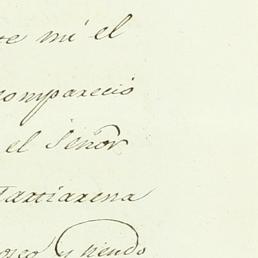 te mi el
compareció
el Señor
Tartiarena
y siendo